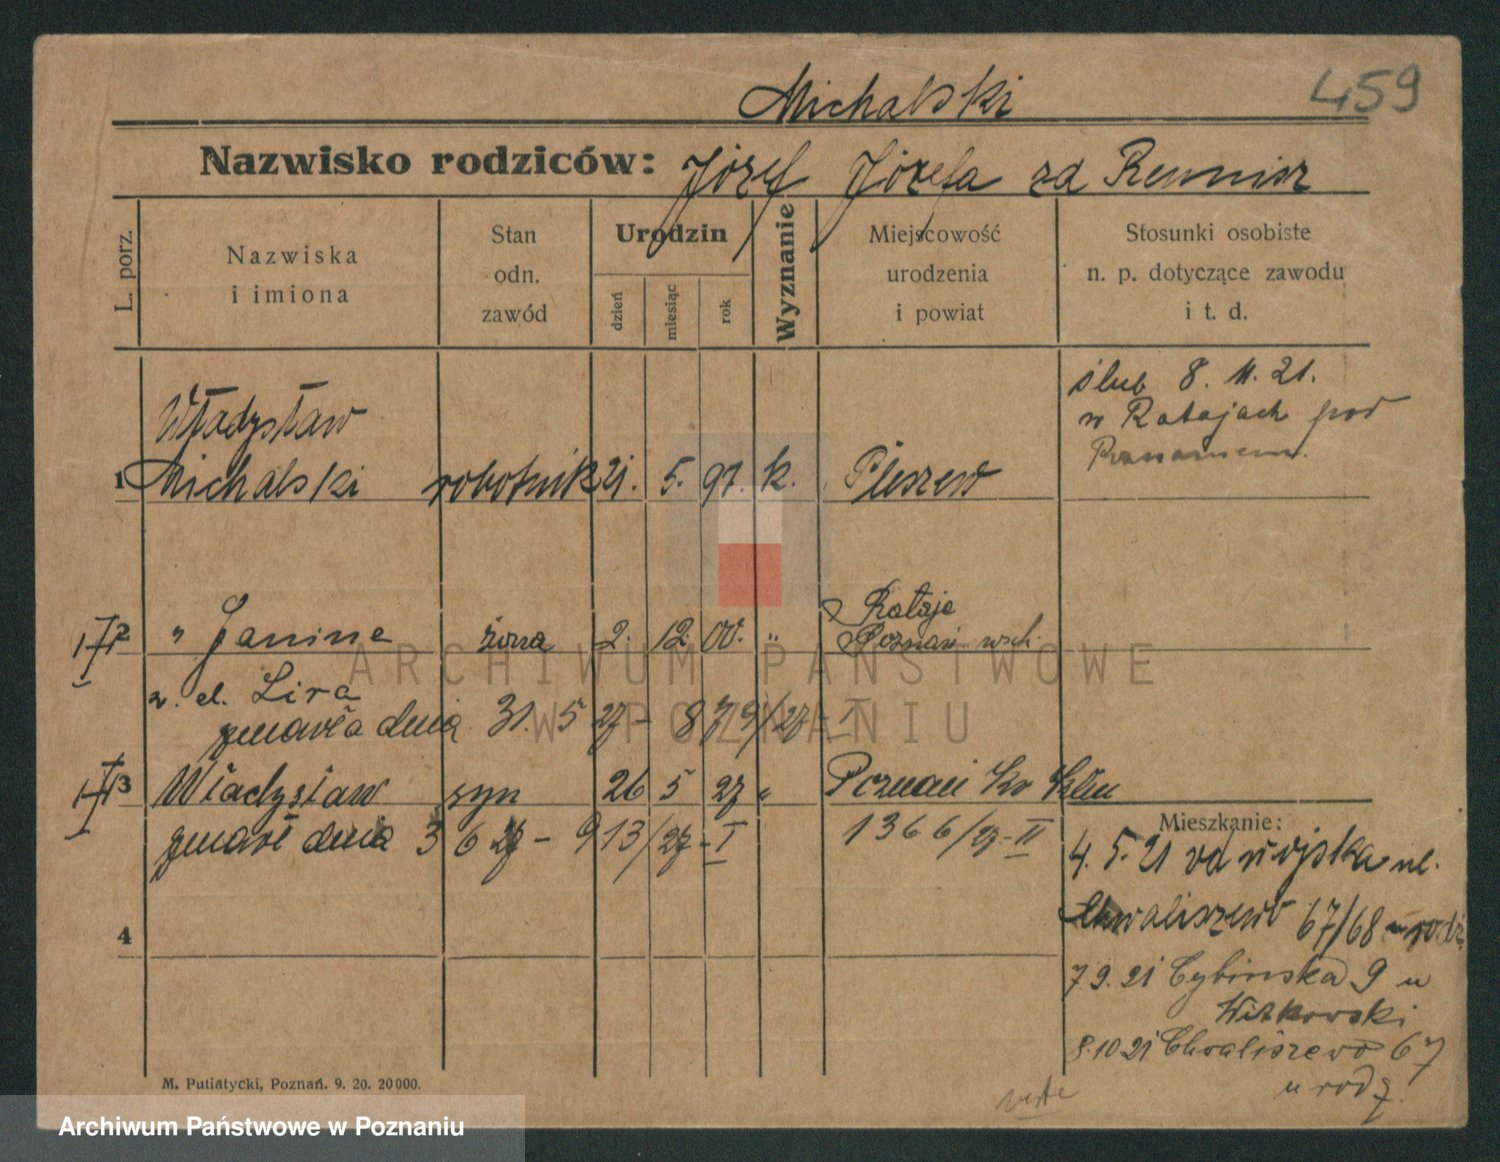 Michalski 459
Nazwisko rodziców: Józef Józefa zd Rennisz
L. porz.
Nazwiska
i imiona
Stan
odn.
zawód
Urodzin
dzień
miesiąc
rok
Wyznanie
Miejscowość
urodzenia
i powiat
Stosunki osobiste
n. p. dotyczące zawodu
i t. d.
ślub 8. 11. 21.
w Ratajach pod
Poznaniem.
Władysław
1 Michalski robotnik 21. 5. 97. k. Pleszew
Rataje
2 " Janina żona 2. 12. 00. " Poznań wsch.
z. d. Lira
zmarła dnia 31. 5 27 - 879/27 - I
3 Władysław syn 26 5 27 " Poznań
zmarł dnia 3 6 27 - 913/27 - I 1366/27 - II
4
Mieszkanie:
4. 5. 21 od wojska ul.
Chwaliszewo 67/68 u rodz
7 9. 21 Cybińska 9 u
Witkowski
8. 10 21 Chwaliszewo 67
u rodz.
verte
M. Putiatycki, Poznań. 9. 20. 20 000.
ARCHIWUM PAŃSTWOWE
W POZNANIU
Archiwum Państwowe w Poznaniu